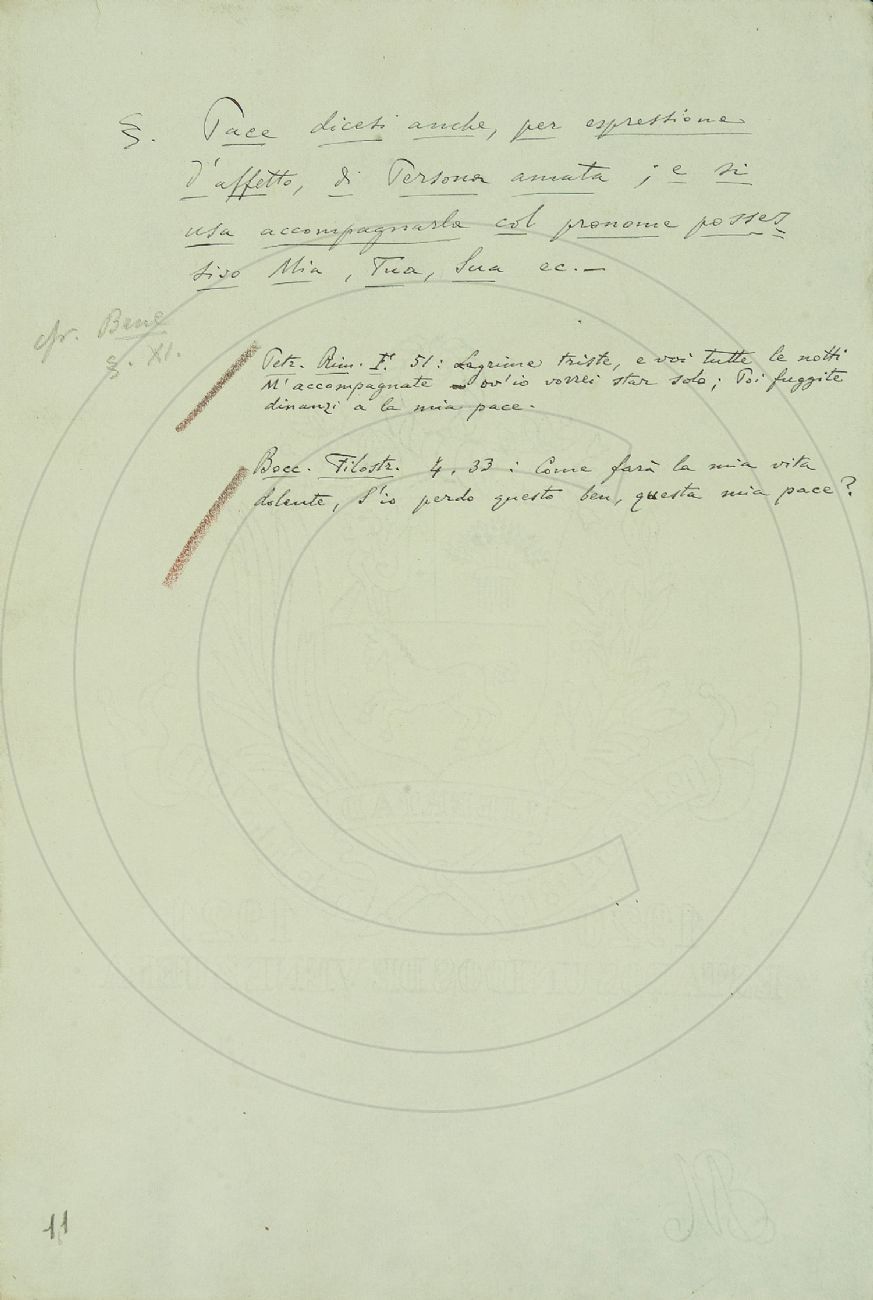 §. Pace dicesi anche, per espressione
d'affetto, di Persona amata ; e si
usa accompagnarla col pronome posses
sivo Mia, Tua, Sua ec. —
cfr. Bene
§. XI.
Petr. Rim. I. 51: Lagrime triste, e voi tutte le notti
M'accompagnate ov'io vorrei star solo; Poi fuggite
dinanzi a la mia pace.
Bocc. Filostr. 4. 33 : Come farà la mia vita
dolente, S'io perdo questo ben, questa mia pace?
11